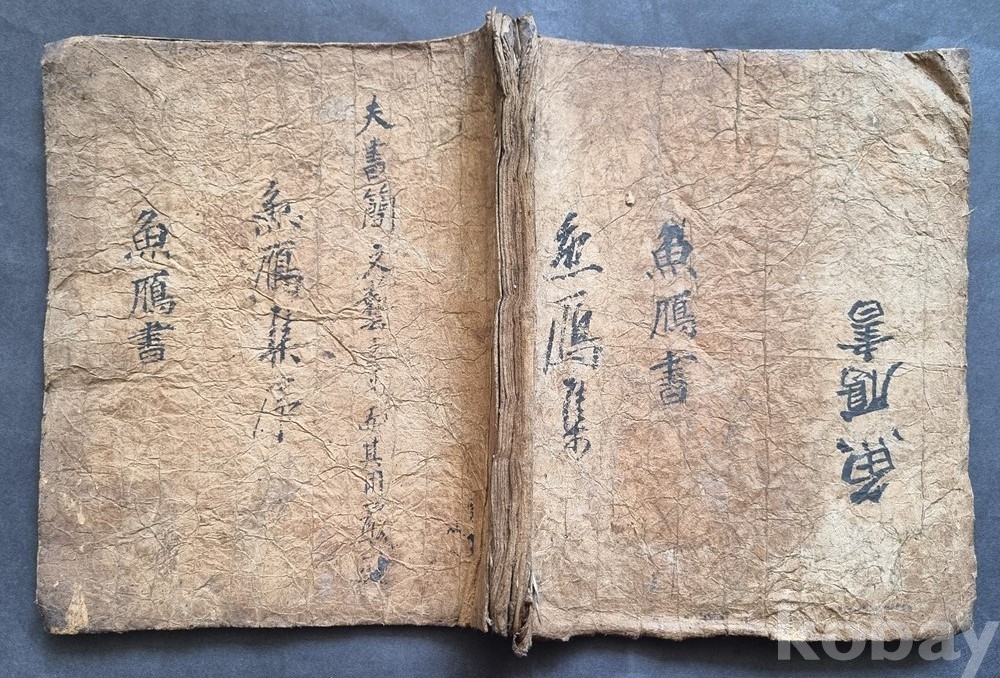 魚鴈書
魚鴈書
魚鴈集
夫書簡 文藝之末 而其用
魚鴈集序
魚鴈書
kobay